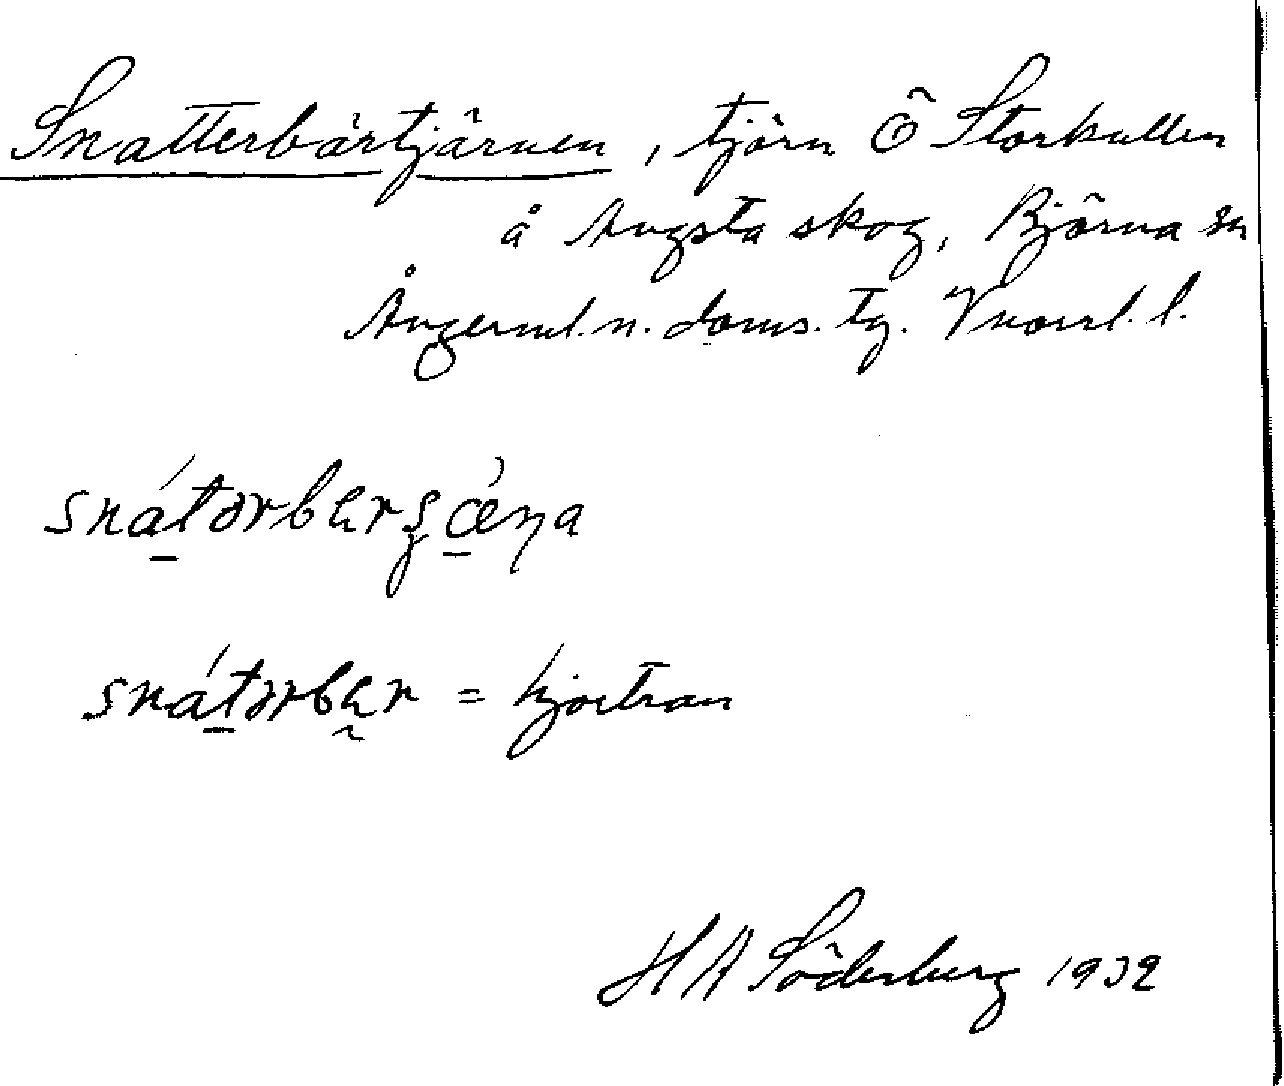 Snatterbärtjärnen, tjärn Ö Storkullen
å Angsta skog, Björna sn
Ångerml. n. doms. tg. Vnorrl. l.
snátərbærʂǽɳa
snátərbær = hjortron
H A Söderberg 1932